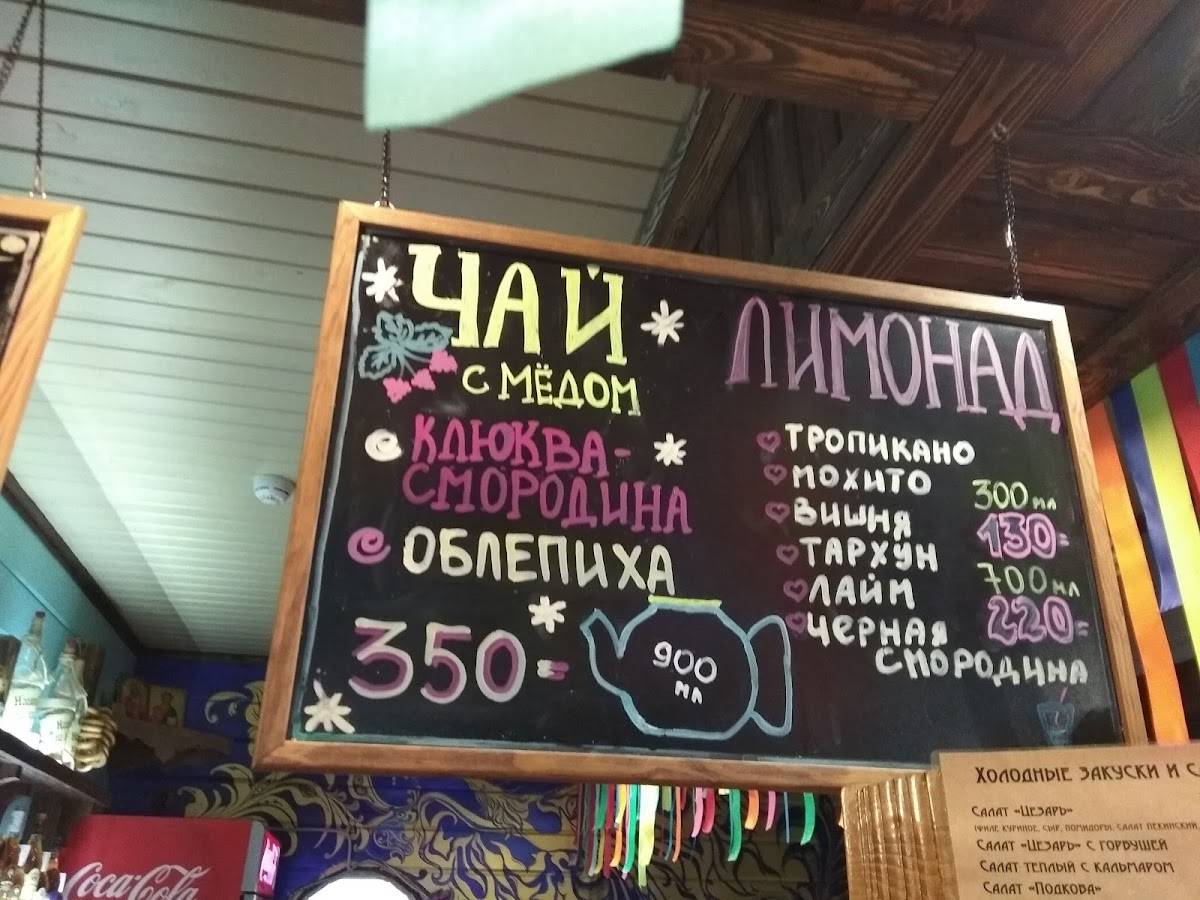 ЧАЙ
С МЁДОМ
КЛЮКВА-
СМОРОДИНА
ОБЛЕПИХА
350=
900
МЛ
ЛИМОНАД
ТРОПИКАНО
МОХИТО
ВИШНЯ
ТАРХУН
ЛАЙМ
ЧЕРНАЯ
СМОРОДИНА
300 МЛ
130=
700 МЛ
220=
ХОЛОДНЫЕ ЗАКУСКИ И С
САЛАТ «ЦЕЗАРЬ»
(ФИЛЕ КУРИНОЕ, СЫР, ПОМИДОРЫ, САЛАТ ПЕКИНСКИЙ,
САЛАТ «ЦЕЗАРЬ» С ГОРБУШЕЙ
САЛАТ ТЕПЛЫЙ С КАЛЬМАРОМ
САЛАТ «ПОДКОВА»
Coca-Cola